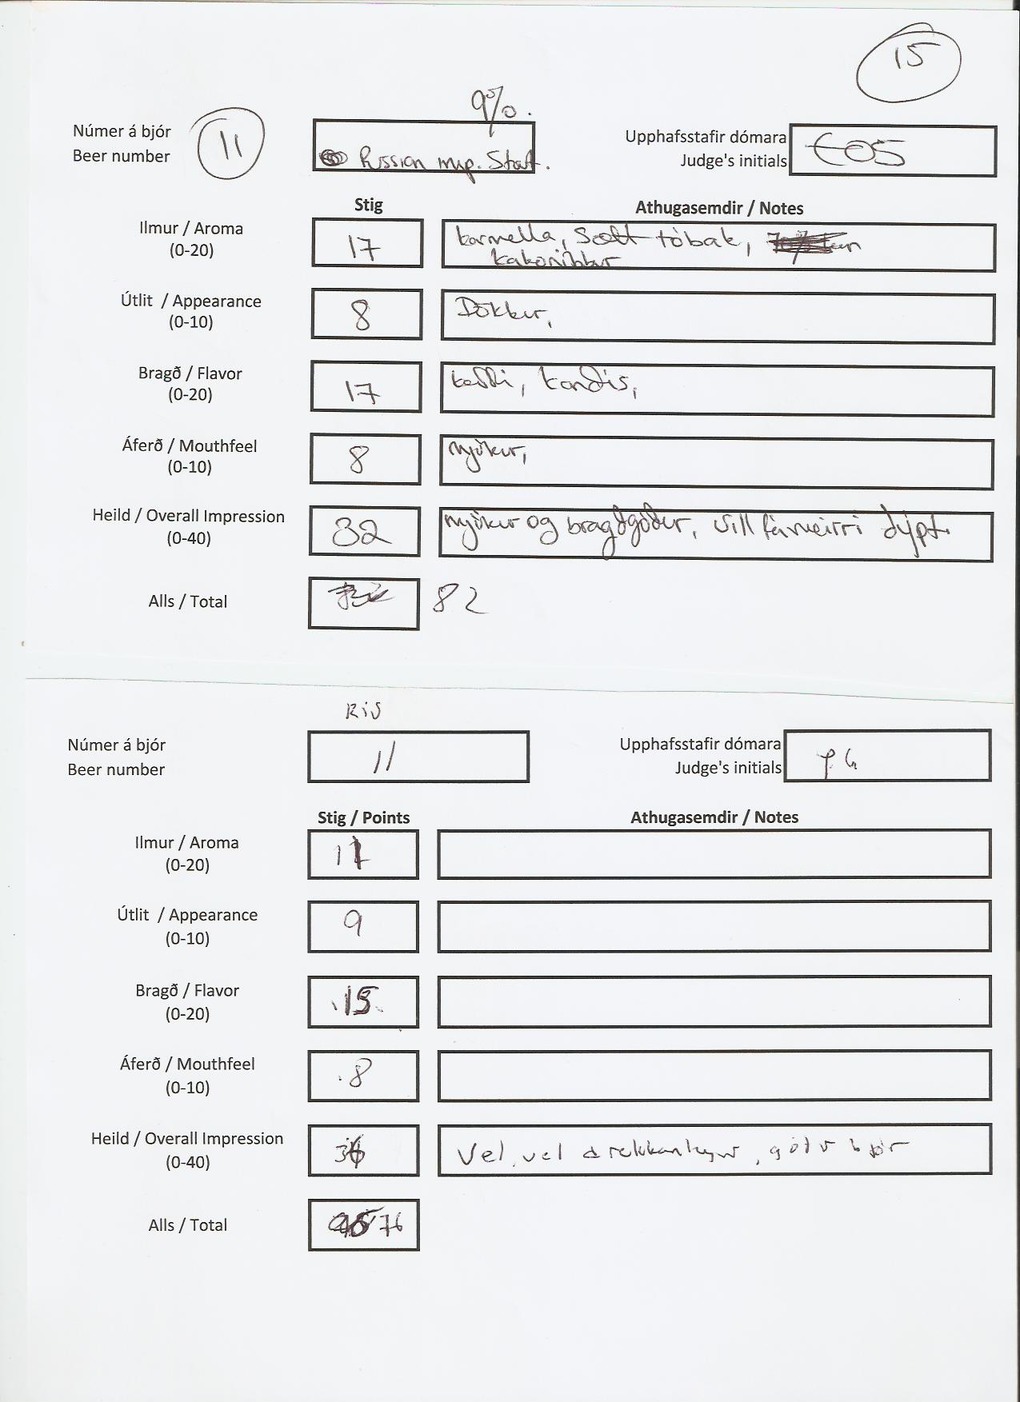 15
9%.
Númer á bjór
Beer number
11
Russian imp. Stout.
Upphafsstafir dómara
Judge's initials
EOS
Stig
Athugasemdir / Notes
Ilmur / Aroma
(0-20)
17
karmella, Sætt tóbak,
kakonibbur
Útlit / Appearance
(0-10)
8
Dökkur,
Bragð / Flavor
(0-20)
17
kaffi, kandís,
Áferð / Mouthfeel
(0-10)
8
mjúkur,
Heild / Overall Impression
(0-40)
32
mjúkur og bragðgóður, vill fá meirri dýpt.
Alls / Total
82
RIS
Númer á bjór
Beer number
11
Upphafsstafir dómara
Judge's initials
Stig / Points
Athugasemdir / Notes
Ilmur / Aroma
(0-20)
Útlit / Appearance
(0-10)
9
Bragð / Flavor
(0-20)
15
Áferð / Mouthfeel
(0-10)
8
Heild / Overall Impression
(0-40)
Vel, vel drekkanlegur, góður bjór
Alls / Total
76